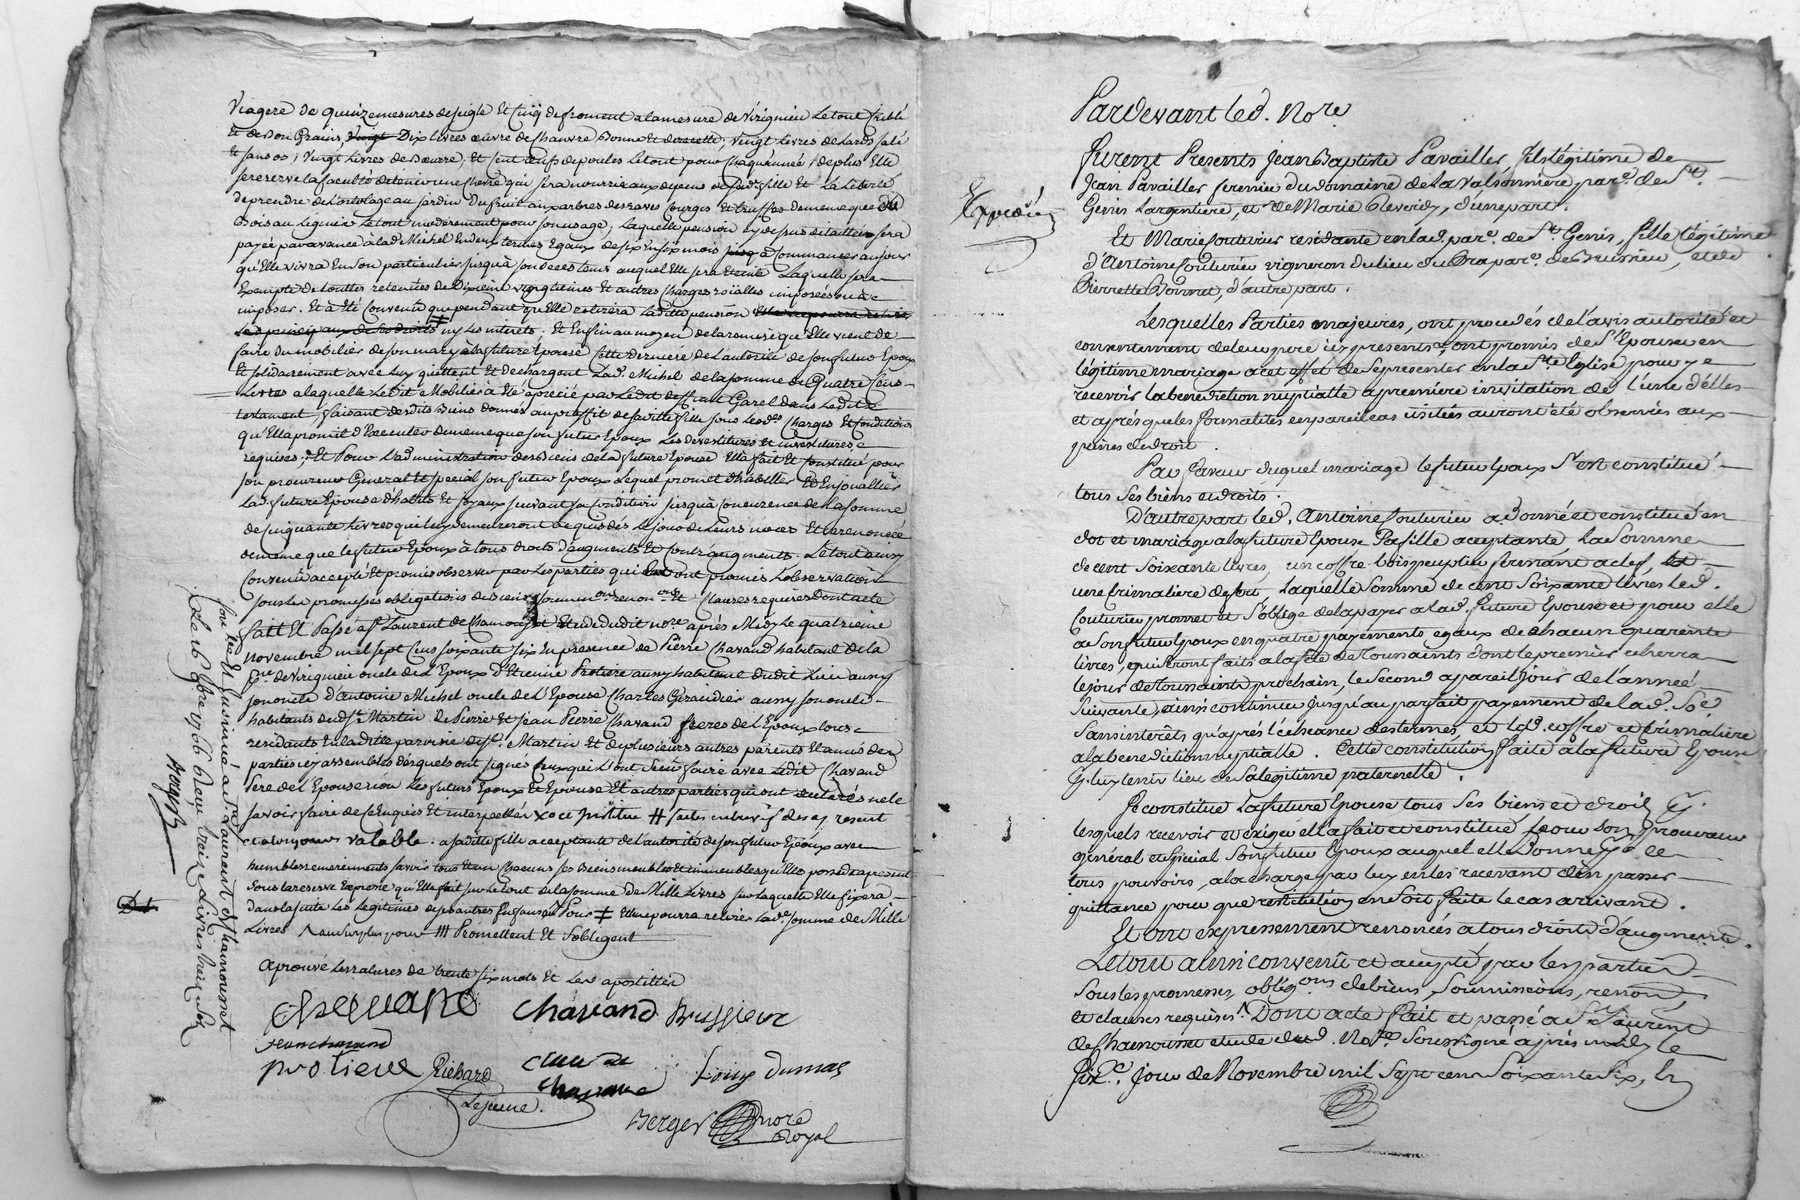 Viagere de quinze mesures de seigle et cinq de froment a la mesure de Virignieu le tout crible
et de bon grains, vingt dix livres œuvre de chanvre bonne et vingt livres de lard salé
et sans os, vingt livres de beurre, et cent œufs de poules le tout pour chaque année, de plus elle
se reserve la faculté de tenir une chevre qui sera nourrie aux depens de sad. fille et la liberté
de prendre de l'ortolage au jardin du fruit aux arbres des raves courges et truffes de meme que du
bois au ligner le tout moderement pour son usage, laquelle pension cy dessus detaillée sera
payée par avance a lad. Michel en deux termes egaux de six en six mois a commancer au jour
qu'elle vivra en son particulier jusqu'à son deces tems auquel elle sera eteinte laquelle sera
exempte de toutes retenues de dixieme vingtiemes et autres charges roialles imposées ou a
imposer. Et a été convenu que pendant qu'elle retirera laditte pension
ny les interets. Et enfin au moyen de la remise qu'elle vient de
faire du mobilier de son mary à la future epouse cette derniere de l'autorité de son futur epoux
et solidairement avec luy quittent et dechargent lad. Michel de la somme de quatre cens
livres a laquelle ledit mobilier a été aprecié par ledit deffunt Garel dans ledit
testament faisant desdits biens donnés au proffit de saditte fille sous lesd. charges et conditions
qu'elle promet d'executer de meme que son futur epoux les devestitures et investitures
requises; Et pour l'administration des biens de la future epouse elle a fait et constitué pour
son procureur general et special son futur epoux lequel promet d'habiller et enjouallier
lad. future epouse d'habits et joyaux suivant sa condition jusqu'à concurence de la somme
de cinquante livres qui luy demeureront acquis dés le jour de leurs noces et a renoncé
de meme que le futur epoux à tous droits d'augments et contraugments. Le tout ainsy
convenu accepté et promis observer par les parties qui ont promis l'observation
sous les promesses obligations de biens soummons renonons et clauses requises dont acte
fait et passé a St Laurent de Chamousset etude dudit nore après midy le quatrieme
novembre mil sept cens soixante six en presence de Pierre Chavand habitant de la
pse de Virignieu oncle de l'epoux d'Etienne Protiere aussy habitant dudit lieu aussy
son oncle d'Antoine Michel oncle de l'epouse Charles Giraudier aussy son oncle
habitants dud. St Martin de Pierre et Jean Pierre Chavand freres de l'epoux tous
residants en laditte paroisse de St. Martin et de plusieurs autres parents et amis des
parties icy assemblés desquels ont signés ceux qui l'ont sceu faire avec ledit Chavand
pere de l'epouse non les futurs epoux et epouse et autres parties qui ont declarés ne le
savoir faire de ce enquis et interpellés
et toujours valable. a saditte fille acceptante de l'autorité de son futur epoux avec
humbles remerciments savoir tous et un chacuns ses biens meubles et immeubles qu'elle possede a present
sous la reserve expresse qu'elle fait sur le tout de la somme de mille livres sur laquelle elle fixera
dans la suite les legitimes de ses autres enfans pour # elle ne poura retirer lad. somme de mille
livres # Promettent et s'obligent
aprouvé les ratures de trente six mots et les apostilles
Chavand Bussieux
protiere Richard Louis Dumas
Lejeune.
Berger nore
Royal
Con.lé et insinué a St. Laurent de Chamousset
le 16 9bre 1766 Reçu treize livres
Expedié
Pardevant led. Nore
Furent Presents Jean Baptiste Pavailler, fils légitime de
Jean Pavailler fermier du domaine de la Valsonniere par.e de St.
Genis Largentiere, et de Marie Reverdy, d'une part.
Et Marie Couturier residante en lad. par.e de St. Genis, fille légitime
d'Antoine Couturier vigneron du lieu du Bra par.e de Bussieu, et de
Pierrette Bonnet, d'autre part.
Lesquelles Parties majeures, ont procedés de l'avis autorité et
consentement de leurs pere icy presents, ont promis de s'Epouser en
légitime mariage a cet effet de se presenter en la Ste Eglise pour y
recevoir la benediction nuptialle a premiere invitation de l'une d'elles
et aprés que les formalités en pareil cas usitées auront été observées aux
peines de droit.
En faveur duquel mariage le futur Epoux s'est constitué
tous ses biens et droits.
D'autre part led. Antoine Couturier a Donné et constitué en
dot et mariage a la future Epouse sa fille acceptante la somme
de cent soixante livres, un coffre bois peuplier fermant a clef,
une crimaliere de fer, laquelle somme de cent soixante livres led.
Couturier promet et s'oblige de la payer a lad. future Epouse et pour elle
a son futur Epoux en quatre payements egaux de chacun quarente
livres, qui seront faits a la fête de Toussaints dont le premier echerra
le jour de Toussaints prochain, le second a pareil jour de l'année
suivante, ainsi continuer jusqu'au parfait payement de lad. Soe
sans interêts qu'aprés l'echeance des termes, et led. coffre et crimaliere
a la benediction nuptialle. Cette constitution faite a la future Epouse
p. luy tenir lieu de sa légitime paternelle.
Se constitue la future Epouse tous ses biens et droits p.
lesquels recevoir et exiger elle a fait et constitué pour son procureur
général et special son futur Epoux auquel elle Donne p. ce
tous pouvoirs, a la charge par luy en les recevant d'en passer
quittance pour que restitution en soit faite le cas arrivant.
Et ont expressement renoncés a tous droits d'augments.
Le tout ainsi convenû et accepté par les parties
sous les promesses, obligons de biens, soumissions, renons,
et clauses requises. Dont acte fait et passé a St. Laurent
de Chamousset etude dud. Nore Soussigné aprés midy le
six.e jour de Novembre mil Sept cens Soixante Six, En